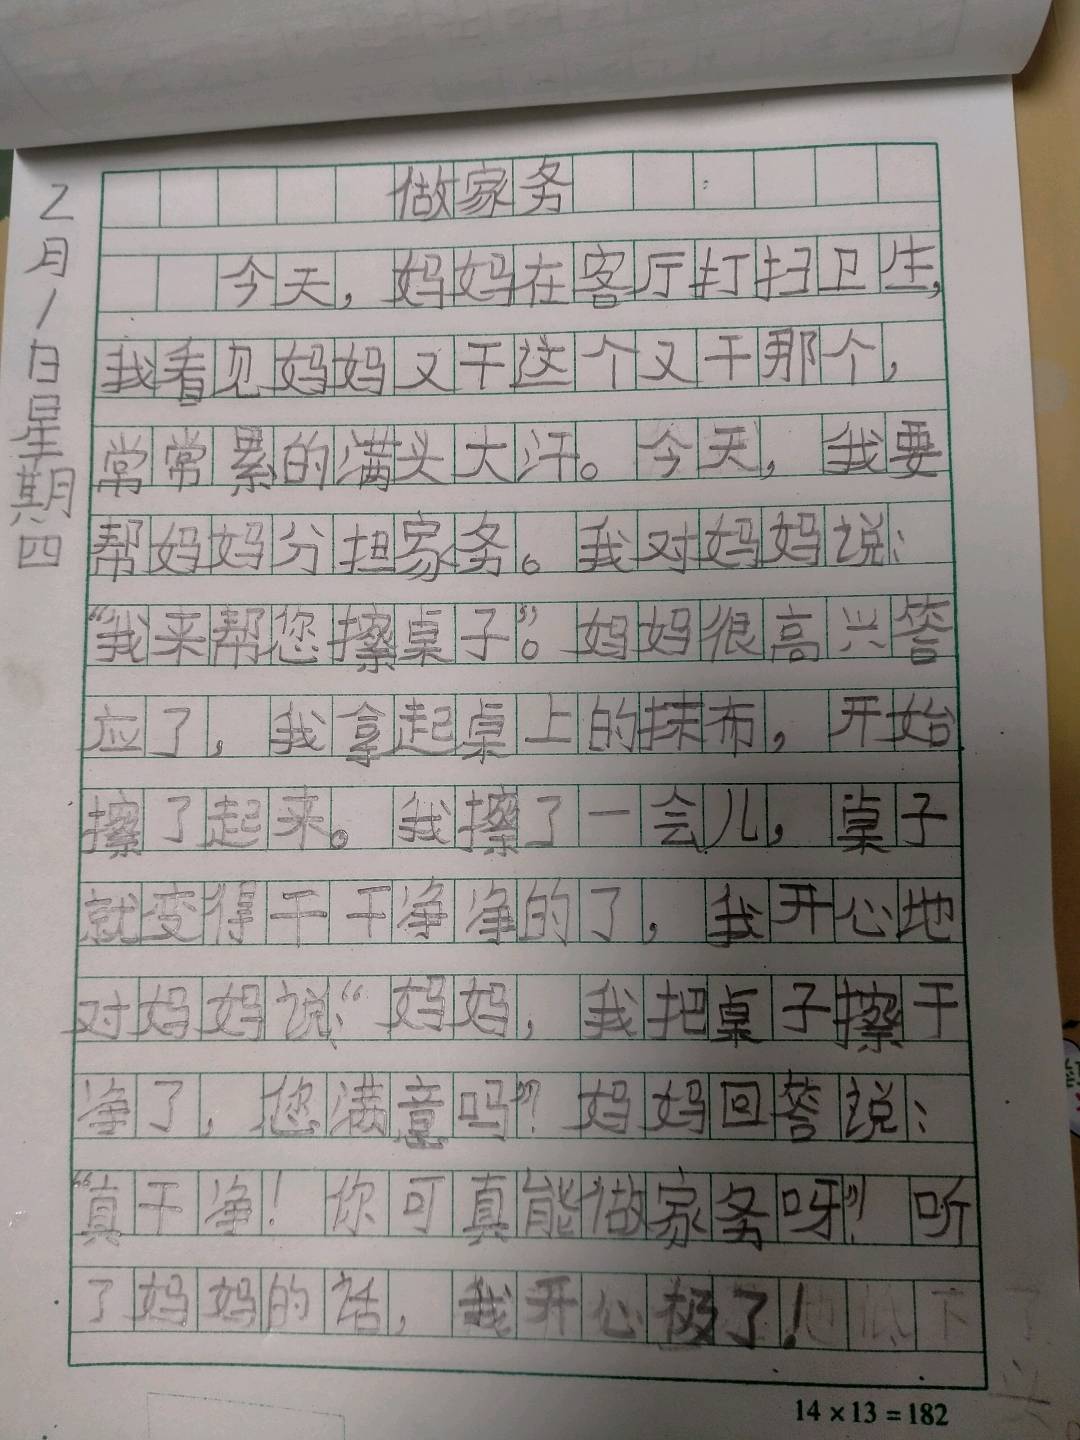 2月1日星期四
做家务
今天，妈妈在客厅打扫卫生，
我看见妈妈又干这个又干那个，
常常累的满头大汗。今天，我要
帮妈妈分担家务。我对妈妈说：
“我来帮您擦桌子”。妈妈很高兴答
应了，我拿起桌上的抹布，开始
擦了起来。我擦了一会儿，桌子
就变得干干净净的了，我开心地
对妈妈说：“妈妈，我把桌子擦干
净了，您满意吗”？妈妈回答说：
“真干净！你可真能做家务呀”！听
了妈妈的话，我开心极了！
14×13=182